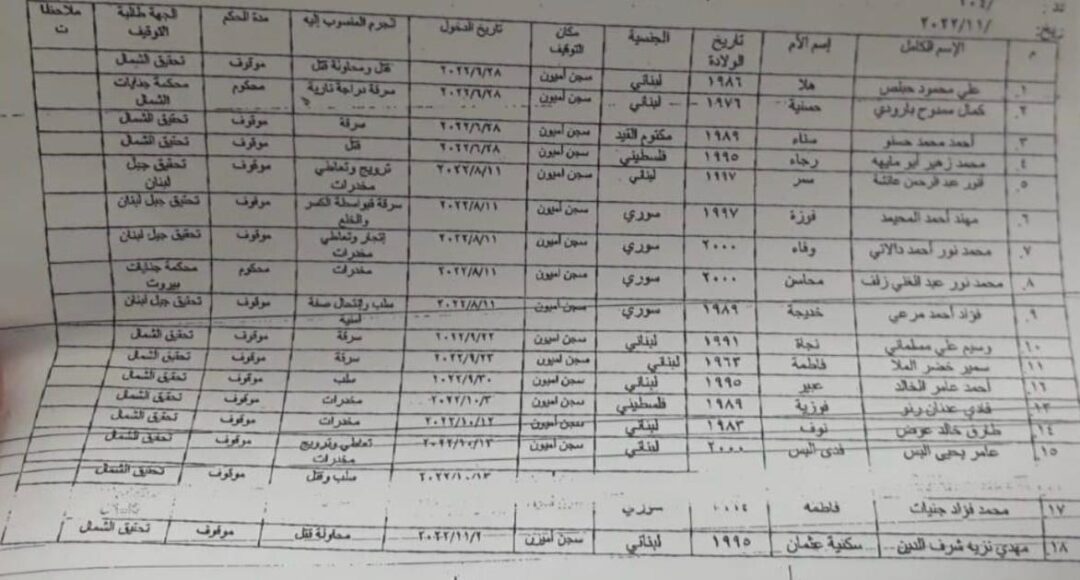 ٢٠٤/
تاريخ: /٢٠٢٢/١١
م الإسم الكامل إسم الأم تاريخ الولادة الجنسية مكان التوقيف تاريخ الدخول الجرم المنسوب إليه مدة الحكم الجهة طالبة التوقيف ملاحظات
١. علي محمود حبلص هلا ١٩٨٦ لبناني سجن اميون ٢٠٢٢/٦/٢٨ قتل ومحاولة قتل موقوف تحقيق الشمال
٢. كمال ممدوح بارودي حسنية ١٩٧٦ لبناني سجن اميون ٢٠٢٢/٦/٢٨ سرقة دراجة نارية محكوم محكمة جنايات الشمال
٣. أحمد محمد حسنو سناء ١٩٨٩ مكتوم القيد سجن اميون ٢٠٢٢/٦/٢٨ سرقة موقوف تحقيق الشمال
٤. محمد زهير أبو مايهه رجاء ١٩٩٥ فلسطيني سجن اميون ٢٠٢٢/٦/٢٨ قتل موقوف تحقيق الشمال
٥. عبد الرحمن عائشة سمر ١٩٩٧ لبناني سجن اميون ٢٠٢٢/٨/١١ ترويج وتعاطي مخدرات موقوف تحقيق جبل لبنان
٦. مهند أحمد المحيمد فوزة ١٩٩٧ سوري سجن اميون ٢٠٢٢/٨/١١ سرقة بواسطة الكسر والخلع موقوف تحقيق جبل لبنان
٧. محمد نور أحمد دالاتي وفاء ٢٠٠٠ سوري سجن اميون ٢٠٢٢/٨/١١ إتجار وتعاطي مخدرات موقوف تحقيق جبل لبنان
٨. محمد نور عبد الغني زلف محاسن ٢٠٠٠ سوري سجن اميون ٢٠٢٢/٨/١١ مخدرات محكوم محكمة جنايات بيروت
٩. فؤاد أحمد مرعي خديجة ١٩٨٩ سوري سجن اميون ٢٠٢٢/٨/١١ سلب وإنتحال صفة امنية موقوف تحقيق جبل لبنان
١٠. وسيم علي مسلماني نجاة ١٩٩١ لبناني سجن اميون ٢٠٢٢/٩/٢٢ سرقة موقوف تحقيق الشمال
١١. سمير خضر الملا فاطمة ١٩٦٣ لبناني سجن اميون ٢٠٢٢/٩/٢٣ سرقة موقوف تحقيق الشمال
١٢. أحمد عامر الخالد عبير ١٩٩٥ لبناني سجن اميون ٢٠٢٢/٩/٣٠ سلب موقوف تحقيق الشمال
١٣. فادي عدنان رنو فوزية ١٩٨٩ فلسطيني سجن اميون ٢٠٢٢/١٠/٣ مخدرات موقوف تحقيق الشمال
١٤. طارق خالد عوض نوف ١٩٨٣ لبناني سجن اميون ٢٠٢٢/١٠/١٢ مخدرات موقوف تحقيق الشمال
١٥. عامر يحيى البس فدى البس ٢٠٠٠ لبناني سجن اميون ٢٠٢٢/١٠/١٣ تعاطي وترويج مخدرات موقوف تحقيق الشمال
٢٠٢٢/١٠/١٣ سلب وقتل موقوف تحقيق الشمال
١٧. محمد فؤاد جنيات فاطمه سوري
١٨. مهدي نزيه شرف الدين سكنية عثمان ١٩٩٥ لبناني سجن اميون ٢٠٢٢/١١/٢ محاولة قتل موقوف تحقيق الشمال